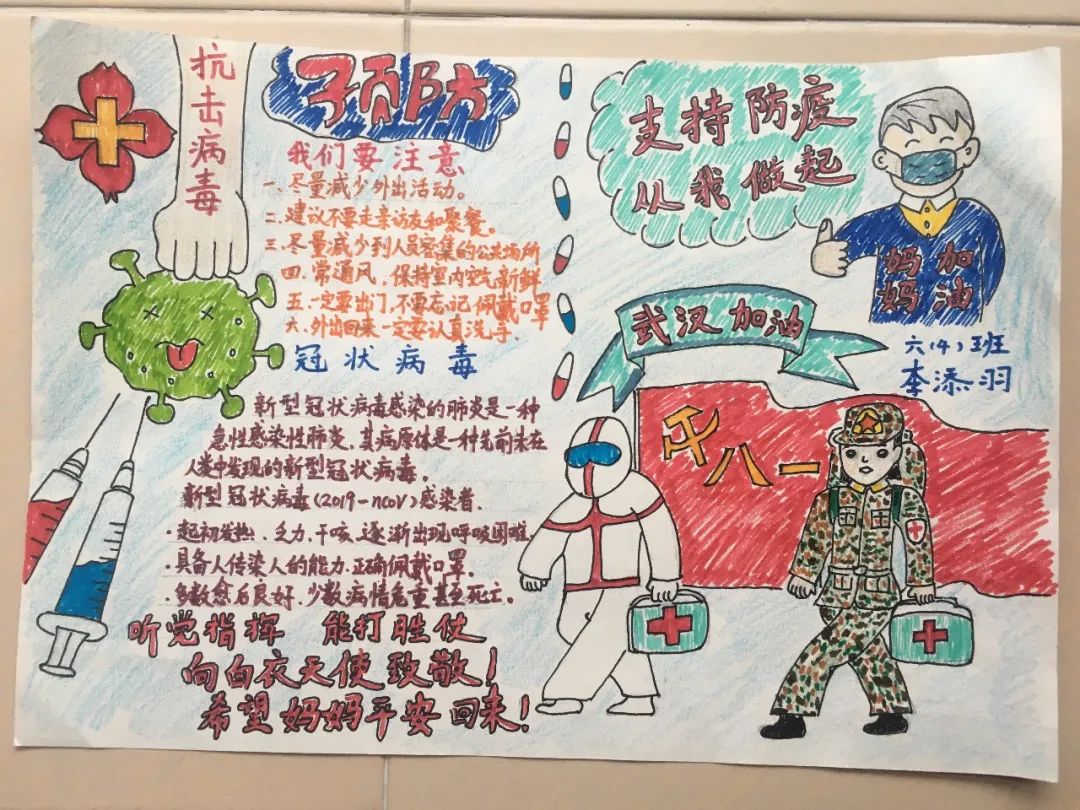 抗击病毒
预防
我们要注意
一、尽量减少外出活动。
二、建议不要走亲访友和聚餐。
三、尽量减少到人员密集的公共场所
四、常通风,保持室内空气新鲜
五、一定要出门,不要忘记佩戴口罩
六、外出回来一定要认真洗手.
冠状病毒
新型冠状病毒感染的肺炎是一种
急性感染性肺炎.其病原体是一种先前未在
人类中发现的新型冠状病毒。
新型冠状病毒(2019-ncoV)感染者.
·起初发热、乏力、干咳、逐渐出现呼吸困难.
·具备人传染人的能力.正确佩戴口罩.
·多数愈后良好.少数病情危重甚至死亡.
听党指挥 能打胜仗
向白衣天使致敬!
希望妈妈平安回来!
支持防疫
从我做起
妈妈加油
武汉加油
六(4)班
李添羽
八一